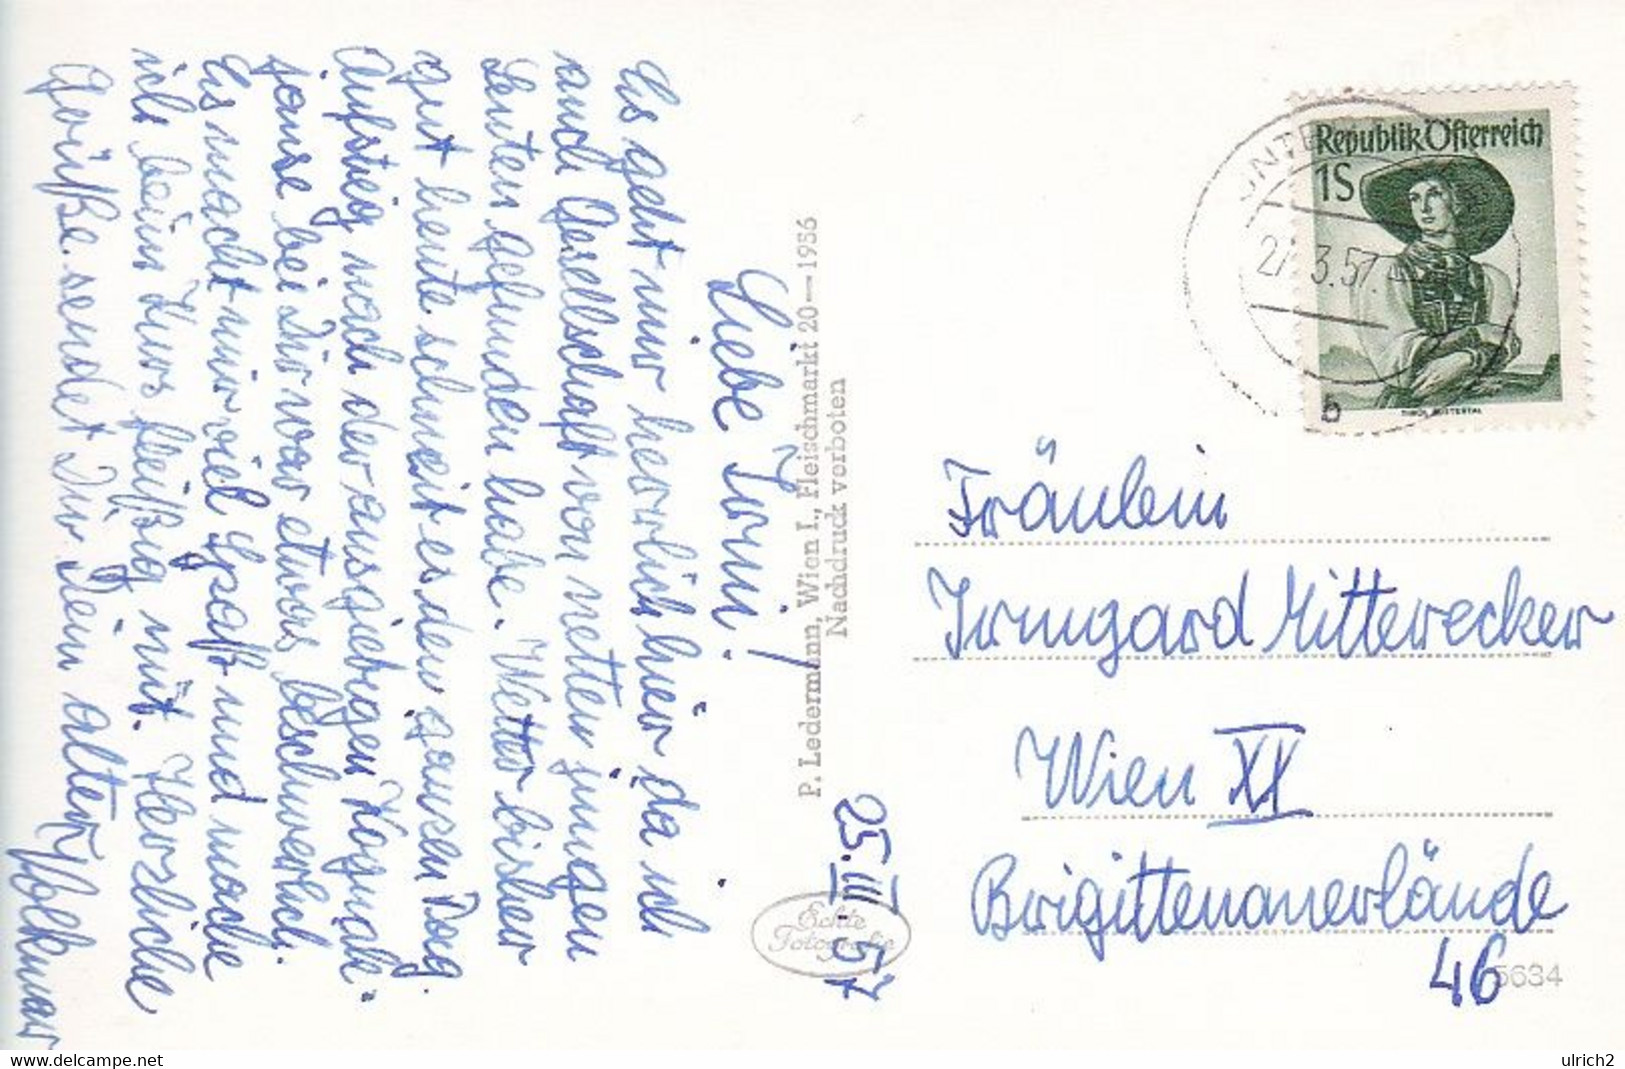 25.III.57
Liebe Irmi!
Es geht mir herrlich hier da ich
auch Gesellschaft von netten jungen
Leuten gefunden habe. Wetter bisher
gut heute schneit es den ganzen Tag.
Aufstieg nach der ausgiebigen Kognak-
jause bei Dir war etwas beschwerlich.
Es macht mir viel Spaß und mache
ich beim Kurs fleißig mit. Herzliche
Grüße sendet Dir Dein alter Volkmar
P. Ledermann, Wien I., Fleischmarkt 20—1956
Nachdruck verboten
Echte
Fotografie
Republik Österreich
1S
TIROL, PUSTERTAL
3.57
b
Fräulein
Irmgard Mitterecker
Wien XX
Brigittenauerlände
46
5634
ulrich2